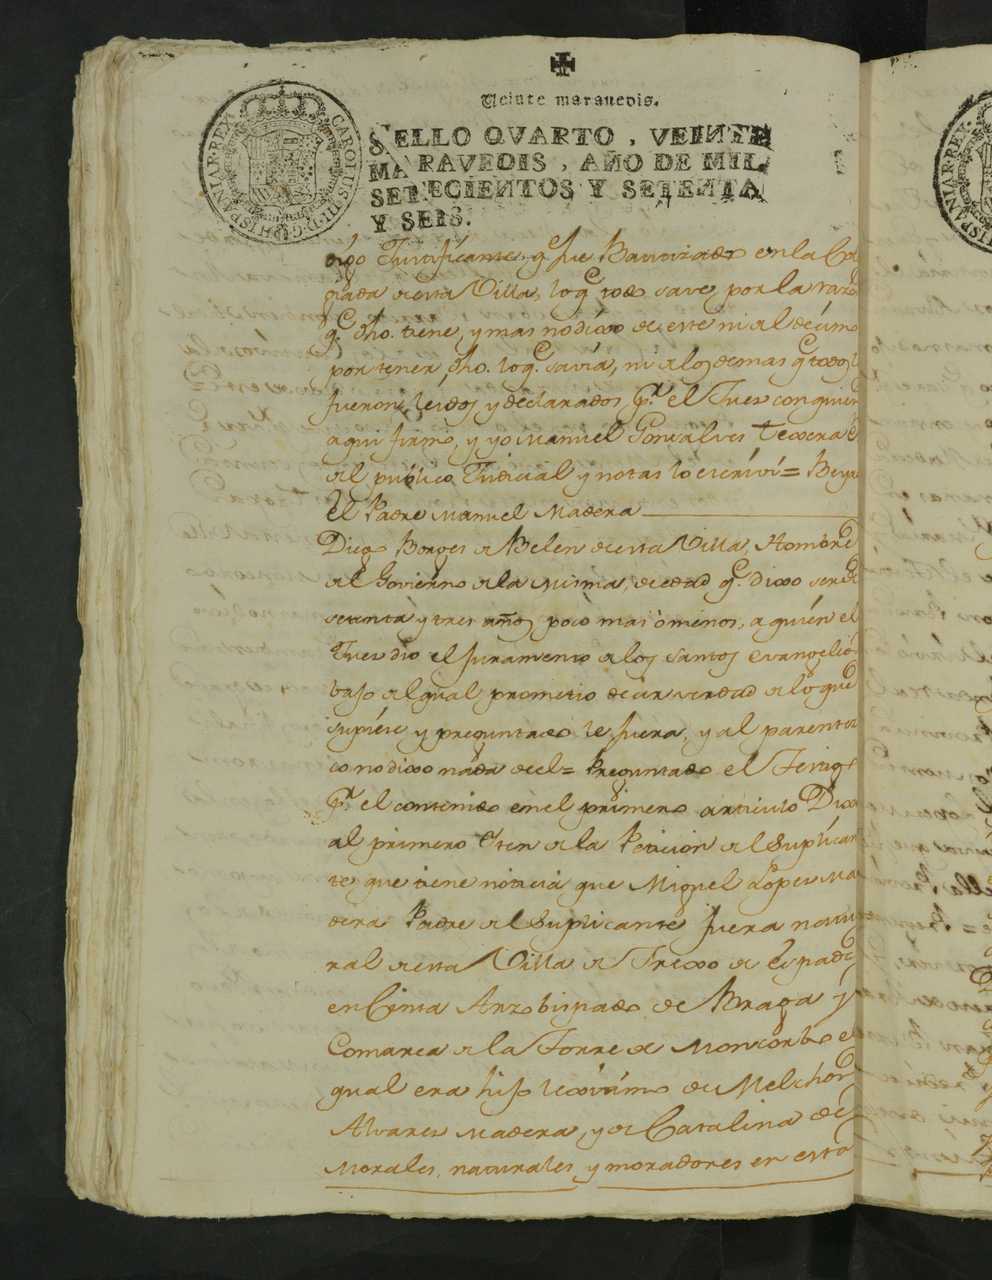 Veinte maravedis.
SELLO QVARTO, VEINTE
MARAVEDIS, AÑO DE MIL
SETECIENTOS Y SETENTA
Y SEIS.
CAROLUS III D G HISPANIAR REX
Justificante, q.e fue Bautizado en la Co
de esta Villa, lo q.e todo save por la razo
q.e dho. tiene, y mas no dixo de este ni al decimo
por tener dho. lo q.e savia, ni a los demas q.e todos l
fueron leidos y declarados p.r el Juez con quien
aqui firmó, y yo Manuel Gonsalves Texera
el publico Judicial y notas lo escriví =
el Padre Manuel Madera
Diego Borges de Belen de esta Villa, Hombre
del Govierno de la misma, de edad q.e dixo ser de
setenta y tres años poco mas ó menos, a quien el
Juez dio el Juramento de los santos evangelios
bajo del qual prometio decir verdad de lo que
supiere y preguntado le fuera, y al parentes
co no dixo nada de el = Preguntado el Testigo
p.r el contenido en el primero articulo Dixo
al primero Iten de la Peticion del Suplican
te, que tiene noticia que Miguel Lopes Ma
dera Padre del Suplicante fuera natu
ral de esta Villa de Frexo de Espada
en Cinta Arzobispado de Braga y
Comarca de la Torre de Moncorbo el
qual era hijo lexitimo de Melchor
Alvares Madera, y de Catalina de
Morales, naturales, y moradores en esta